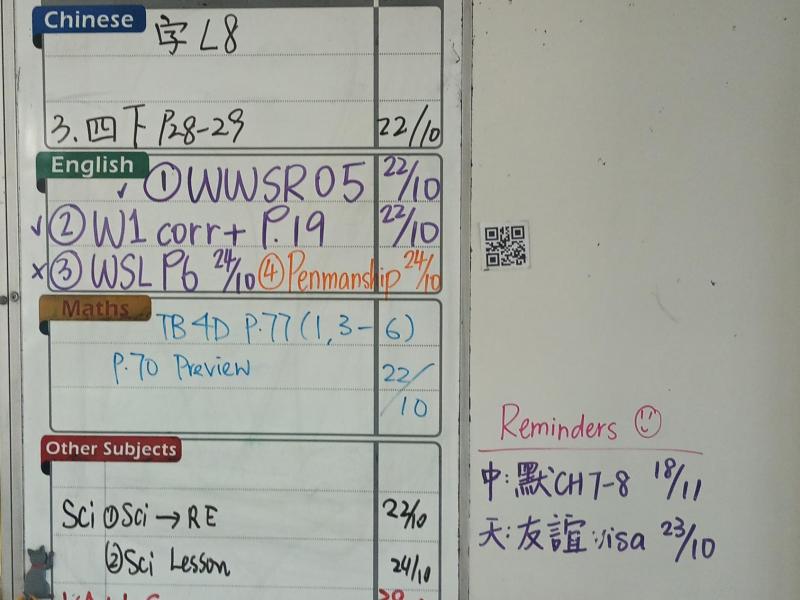 Chinese
字 L8
3. 四下 P.28-29 22/10
English
✓ ① WWSR 05 22/10
✓ ② W1 corr + P.19 22/10
× ③ WSL P6 24/10 ④ Penmanship 24/10
Maths
TB 4D P.77 (1, 3 - 6)
P.70 Preview 22/10
Other Subjects
Sci ① Sci → RE 22/10
② Sci Lesson 24/10
Reminders
中: 默 CH 7-8 18/11
天: 友誼 23/10